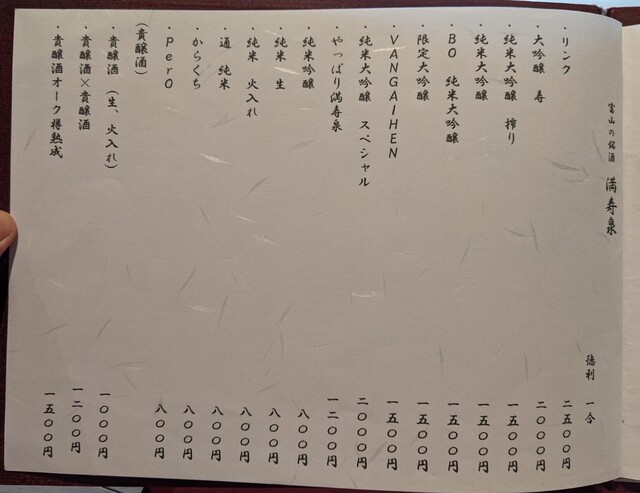 富山の銘酒 満寿泉
徳利 一合
・リンク 二五〇〇円
・大吟醸 寿 二〇〇〇円
・純米大吟醸 搾り 一五〇〇円
・純米大吟醸 一五〇〇円
・BO 純米大吟醸 一五〇〇円
・限定大吟醸 一五〇〇円
・VANGAIHEN 一五〇〇円
・純米大吟醸 スペシャル 二〇〇〇円
・やっぱり満寿泉 一二〇〇円
・純米吟醸 八〇〇円
・純米 生 八〇〇円
・純米 火入れ 八〇〇円
・通 純米 八〇〇円
・からくち 八〇〇円
・PerO 八〇〇円
(貴醸酒)
・貴醸酒 (生、火入れ) 一〇〇〇円
・貴醸酒×貴醸酒 一二〇〇円
・貴醸酒オーク樽熟成 一五〇〇円